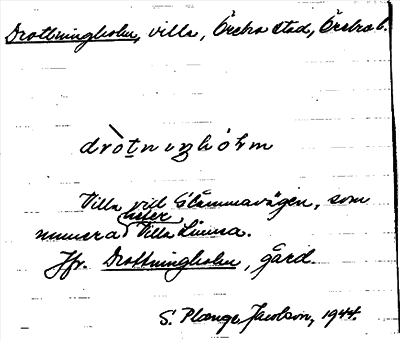 Drottningholm, villa, Örebro stad, Örebro l.
dròtnıŋhólm
Villa vid Glammavägen, som
numera heter Villa Linnea.
Jfr. Drottningholm, gård.
S. Plænge Jacobson, 1944.